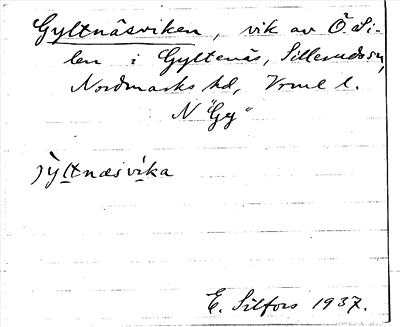 Gyltnäsviken, vik av Ö. Si-
len i Gyltenäs, Sillerud sn,
Nordmarks hd, Vrml l.
N "Gy"
jỳltnæsvíka
E. Silfors 1937.